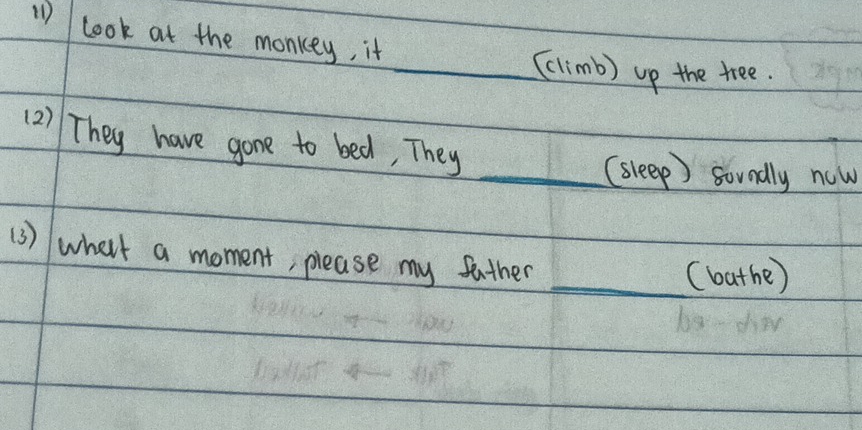 11) Look at the monkey, it ______ (climb) up the tree.
12) They have gone to bed, They ______ (sleep) soundly now
13) what a moment, please my father ______ (bathe)